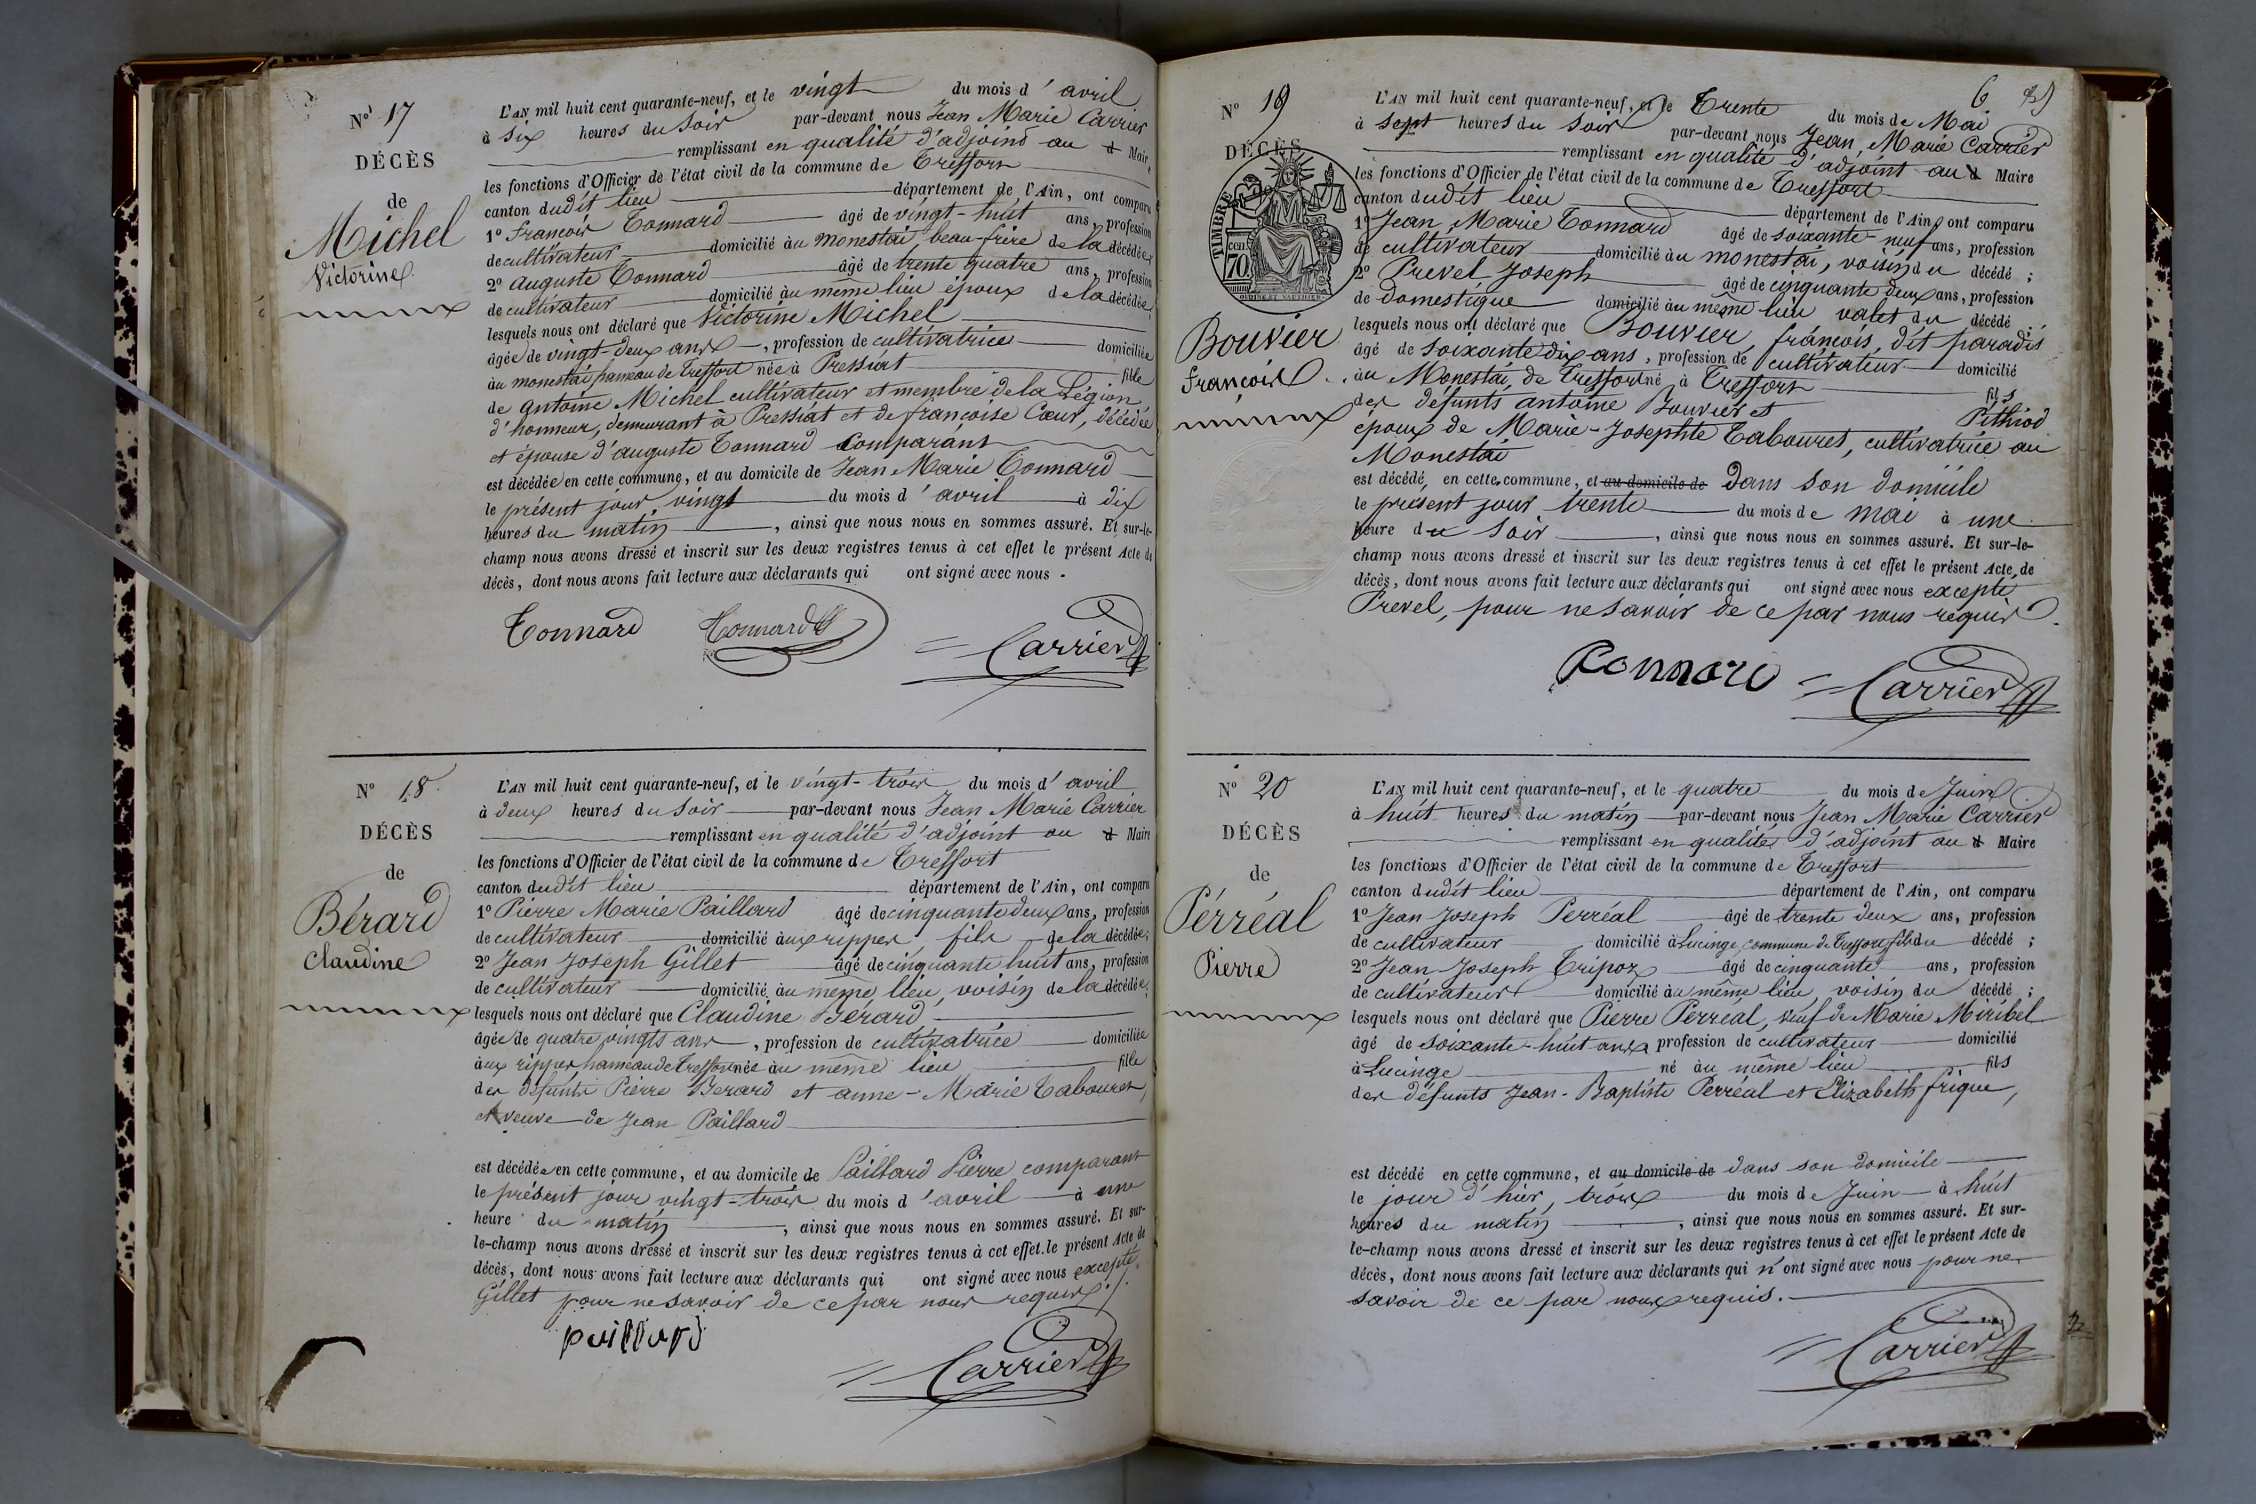 N° 17
DÉCÈS
de
Michel
Victorine
L'AN mil huit cent quarante-neuf, et le vingt du mois d'avril
à six heures du soir par-devant nous Jean Marie Carrier
remplissant en qualité d'adjoint au Maire
les fonctions d'Officier de l'état civil de la commune de Treffort
canton dudit lieu département de l'Ain, ont comparu
1° françois Tonnard âgé de vingt-huit ans, profession
de cultivateur domicilié au monestai, beau-frère de la décédée
2° Auguste Tonnard âgé de trente quatre ans, profession
de cultivateur domicilié au même lieu époux de la décédée
lesquels nous ont déclaré que Victorine Michel
âgée de vingt-deux ans, profession de cultivatrice domiciliée
au monestai hameau de Treffort née à Pressiat fille
de antoine Michel cultivateur et membre de la Légion
d'honneur, demeurant à Pressiat et de françoise Cœur, décédée
et épouse d'auguste Tonnard Comparant
est décédée en cette commune, et au domicile de Jean Marie Tonnard
le présent jour vingt du mois d'avril à dix
heures du matin, ainsi que nous nous en sommes assuré. Et sur-le-
champ nous avons dressé et inscrit sur les deux registres tenus à cet effet le présent Acte de
décès, dont nous avons fait lecture aux déclarants qui ont signé avec nous.
Tonnard Tonnard Carrier
N° 18
DÉCÈS
de
Bérard
Claudine
L'AN mil huit cent quarante-neuf, et le vingt-trois du mois d'avril
à deux heures du soir par-devant nous Jean Marie Carrier
remplissant en qualité d'adjoint au Maire
les fonctions d'Officier de l'état civil de la commune de Treffort
canton dudit lieu département de l'Ain, ont comparu
1° Pierre Marie Paillard âgé de cinquante deux ans, profession
de cultivateur domicilié aux rippes, fils de la décédée;
2° Jean Joseph Gillet âgé de cinquante huit ans, profession
de cultivateur domicilié au même lieu, voisin de la décédée,
lesquels nous ont déclaré que Claudine Bérard
âgée de quatre vingts ans, profession de cultivatrice domiciliée
aux rippes hameau de Treffort née au même lieu fille
des défunts Pierre Berard et anne-Marie Tabouret,
et veuve de Jean Paillard
est décédée en cette commune, et au domicile de Paillard Pierre comparant
le présent jour vingt-trois du mois d'avril à une
heure du matin, ainsi que nous nous en sommes assuré. Et sur-
le-champ nous avons dressé et inscrit sur les deux registres tenus à cet effet le présent Acte de
décès, dont nous avons fait lecture aux déclarants qui ont signé avec nous excepté
Gillet pour ne savoir de ce par nous requis.
paillard Carrier
6
N° 19
DÉCÈS
TIMBRE
cen 70
Bouvier
françois
L'AN mil huit cent quarante-neuf, et le Trente du mois de Mai
à sept heures du soir par-devant nous Jean Marie Carrier
remplissant en qualité d'adjoint au Maire
les fonctions d'Officier de l'état civil de la commune de Treffort
canton dudit lieu département de l'Ain, ont comparu
1° Jean Marie Tonnard âgé de soixante-neuf ans, profession
de cultivateur domicilié au monestai, voisin du décédé;
2° Prevel Joseph âgé de cinquante deux ans, profession
de domestique domicilié au même lieu valet du décédé;
lesquels nous ont déclaré que Bouvier, françois, dit paradis
âgé de soixante dix-ans, profession de cultivateur domicilié
au Monestai de Treffort né à Treffort fils
des défunts antoine Bouvier et Pithiod
époux de Marie-Josephte Tabouret, cultivatrice au
Monestai
est décédé, en cette commune, et au domicile de dans son domicile
le présent jour trente du mois de mai à une
heure du soir, ainsi que nous nous en sommes assuré. Et sur-le-
champ nous avons dressé et inscrit sur les deux registres tenus à cet effet le présent Acte de
décès, dont nous avons fait lecture aux déclarants qui ont signé avec nous excepté
Prevel, pour ne savoir de ce par nous requis.
Tonnard Carrier
N° 20
DÉCÈS
de
Pérréal
Pierre
L'AN mil huit cent quarante-neuf, et le quatre du mois de Juin
à huit heures du matin par-devant nous Jean Marie Carrier
remplissant en qualité d'adjoint au Maire
les fonctions d'Officier de l'état civil de la commune de Treffort
canton dudit lieu département de l'Ain, ont comparu
1° Jean Joseph Perréal âgé de trente deux ans, profession
de cultivateur domicilié à Lucinge, commune de Treffort fils du décédé;
2° Jean Joseph Tripoz âgé de cinquante ans, profession
de cultivateur domicilié au même lieu, voisin du décédé;
lesquels nous ont déclaré que Pierre Perréal, veuf de Marie Miribel
âgé de soixante-huit ans profession de cultivateur domicilié
à Lucinge né au même lieu fils
des défunts Jean-Baptiste Perréal et Elizabeth frique,
est décédé en cette commune, et au domicile de dans son domicile
le jour d'hier, trois du mois de Juin à huit
heures du matin, ainsi que nous nous en sommes assuré. Et sur-
le-champ nous avons dressé et inscrit sur les deux registres tenus à cet effet le présent Acte de
décès, dont nous avons fait lecture aux déclarants qui n'ont signé avec nous pour ne
savoir de ce par nous requis.
Carrier